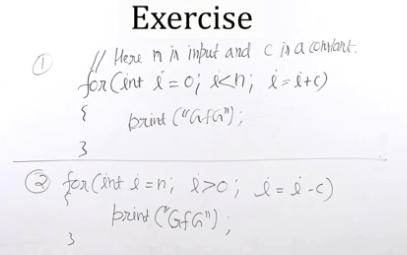 Exercise
① // Here n is input and c is a constant.
for(int i=0; i<n; i=i+c)
{
print("GfG");
}
② for(int i=n; i>0; i=i-c)
{
print("GfG");
}